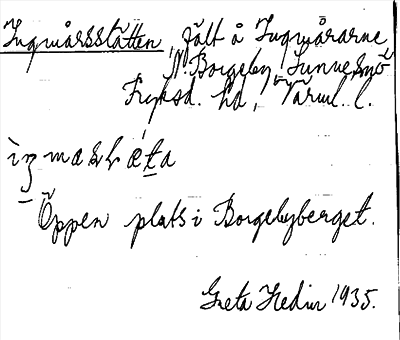 Ingmårsstätten, fält å Ingmårarne
N. Borgeby, Sunne sn
Fryksd. hd, Värml. l.
Öppen plats i Borgebyberget.
Greta Hedin 1935.